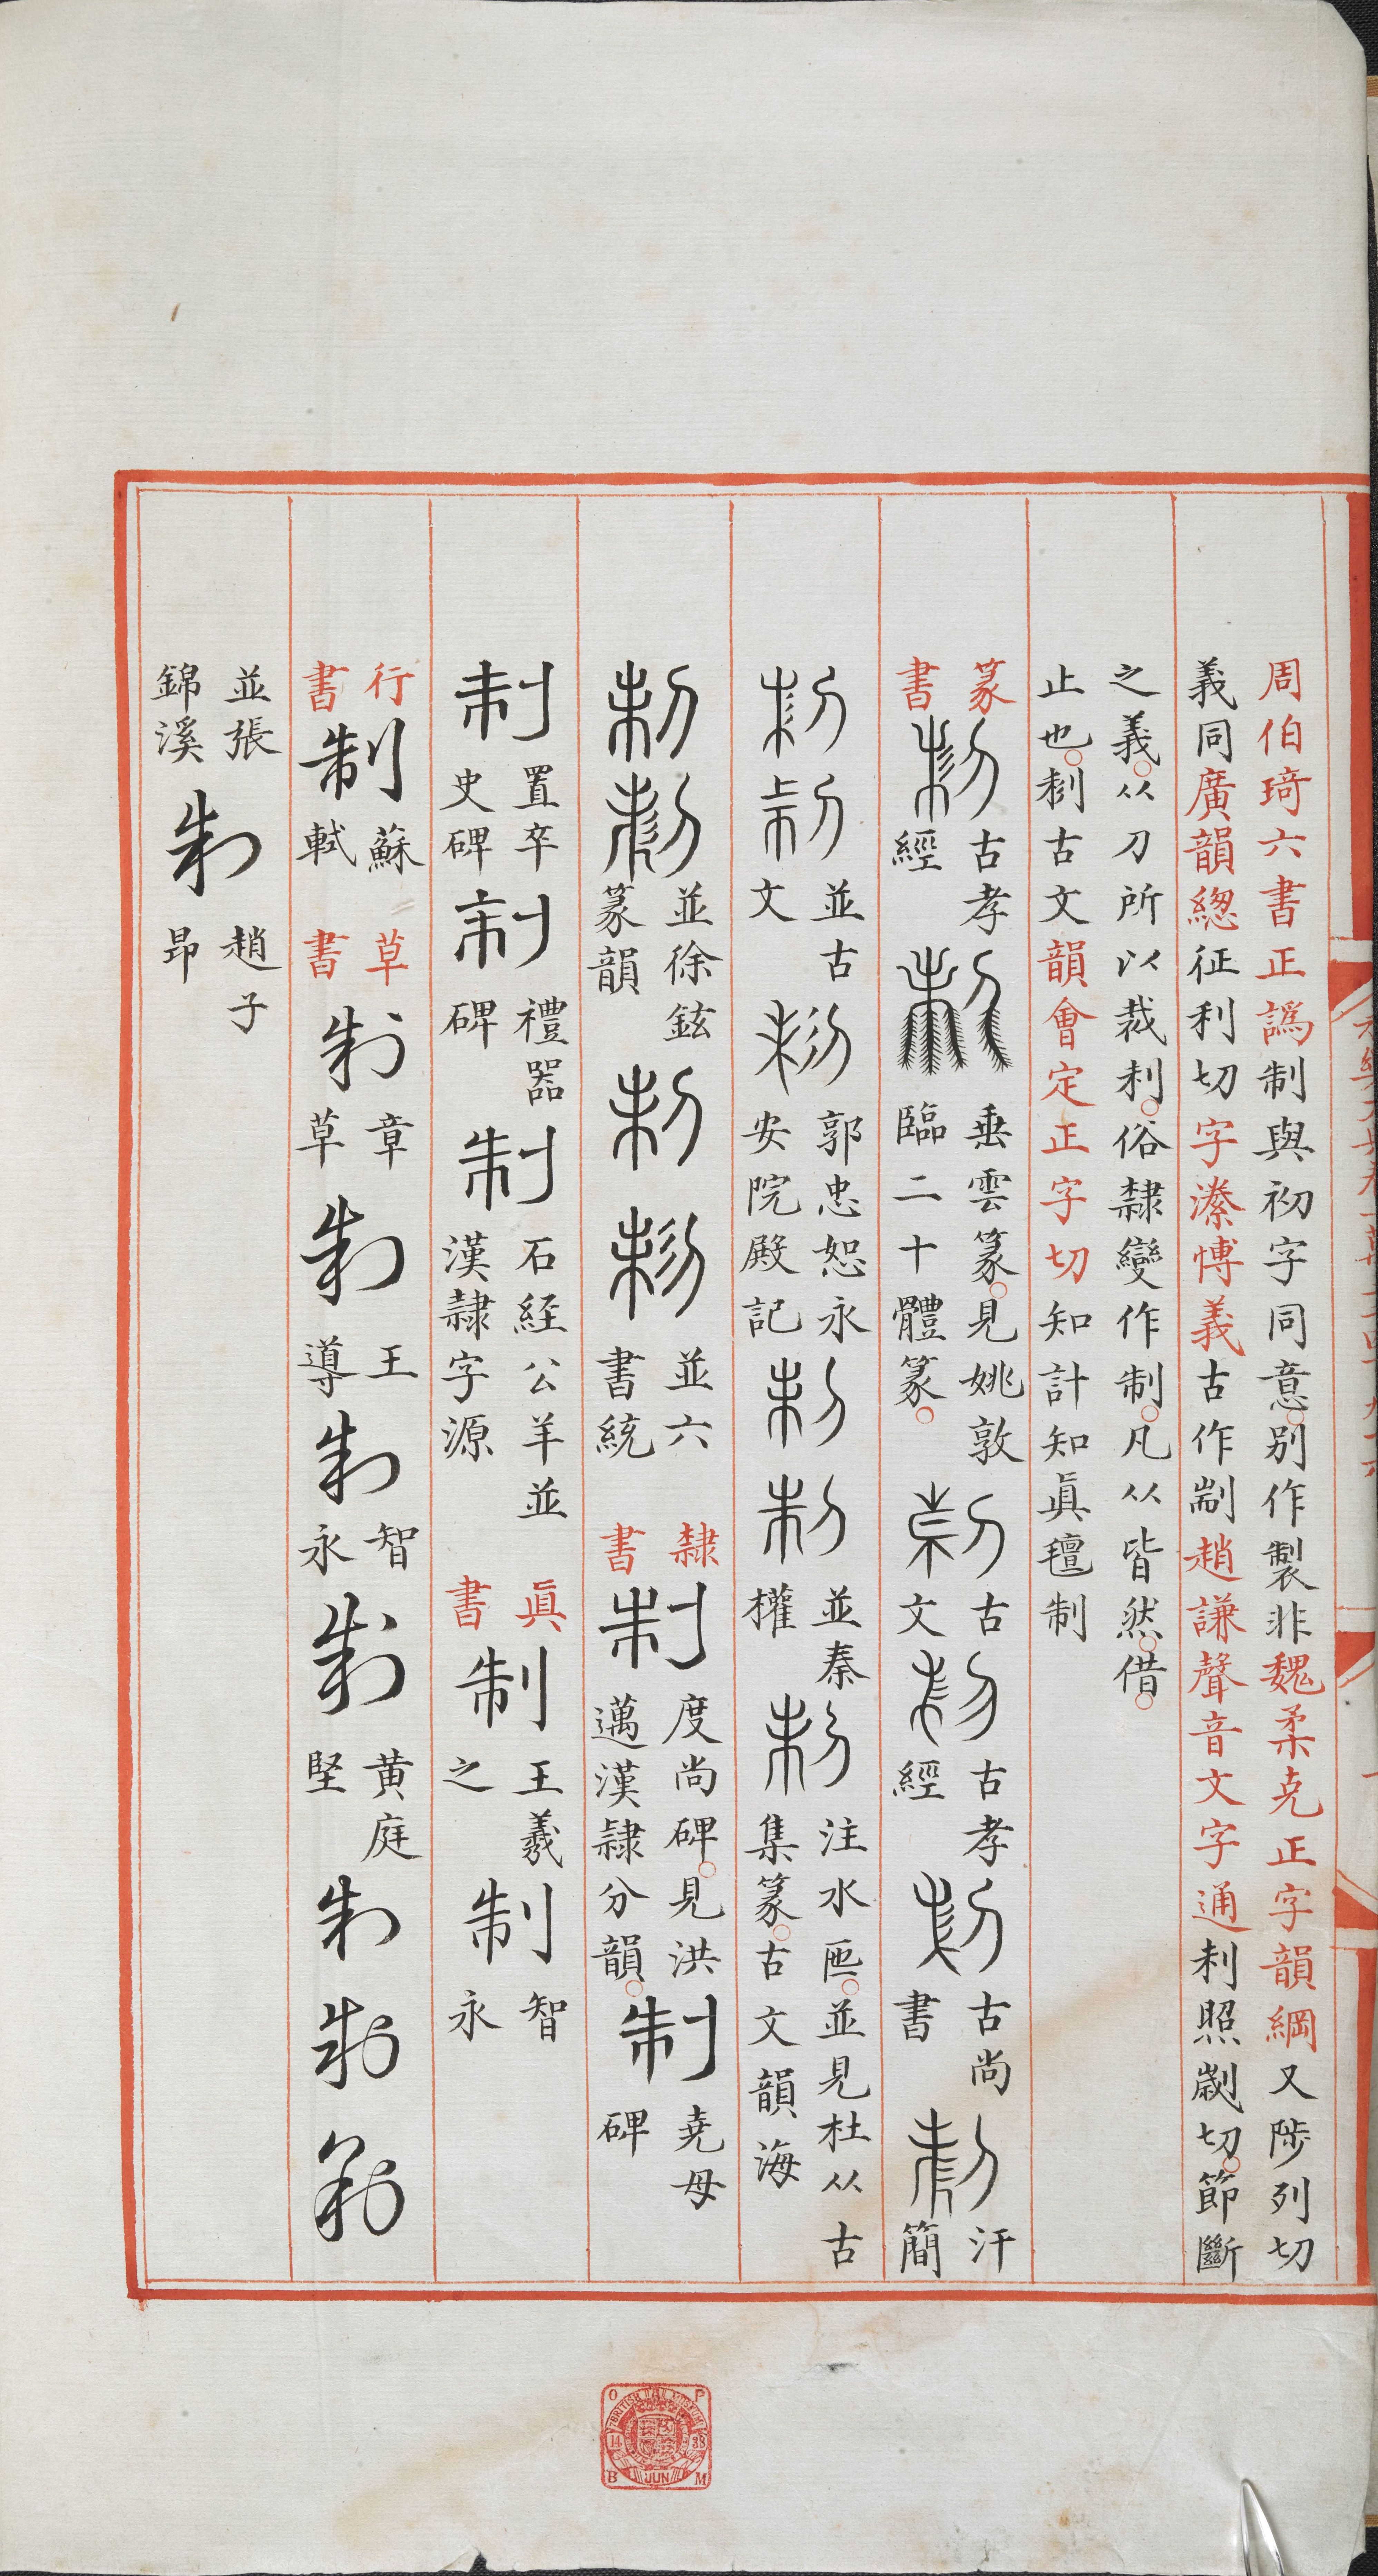 周伯琦六書正譌制與初字同意别作製非魏柔克正字韻綱又陟列切
義同廣韻緫征利切字潫博義古作㓡趙謙聲音文字通利照歳切節斷
之義从刀所以裁利俗隸變作制凡从皆然借
止也𠛐古文韻會定正字切知計知眞氊制
篆書
古孝經
垂雲篆見姚敦臨二十體篆
古文
古孝經
古尚書
汗簡
並古文
郭忠恕永安院殿記
並秦權
注水匜並見杜从古集篆古文韻海
並徐鉉篆韻
並六書統
隸書
制
度尚碑見洪邁漢隸分韻
制
堯母碑
制
置卒史碑
制
禮器碑
制
石経公羊並漢隸字源
眞書
制
王羲之
制
智永
行書
制
蘇軾
草書
制
章草
制
王導
制
智永
制
黄庭堅
制
制
制
並張錦溪
制
趙子昂
BRITISH MUSEUM
14 JUN 38